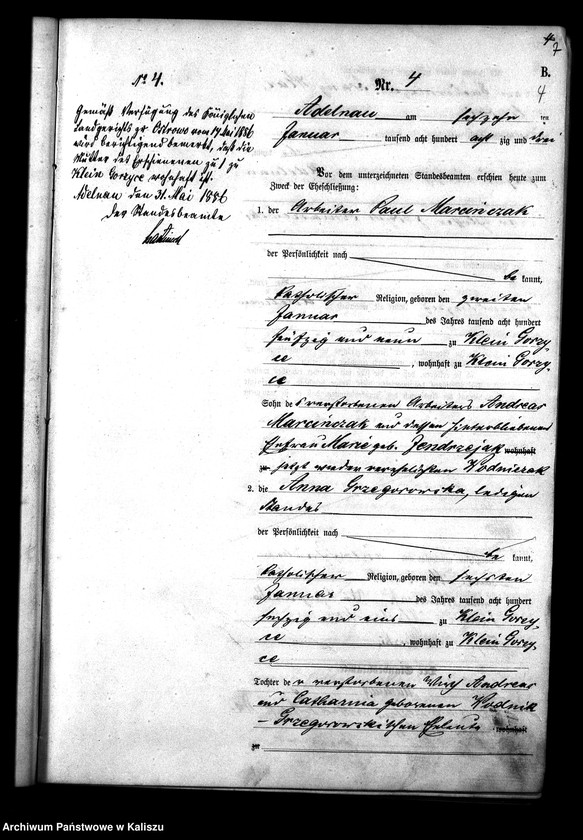 4.
7
B.
4
No 4.
Nr. 4
Gemäß Verfügung des Königlichen
Landgerichts zu Ostrowo vom 17 Mai 1886
wird berichtigend bemerkt, daß die
Mutter des Erschienenen zu 1 zu
Klein Gorzyce wohnhaft ist.
Adelnau den 31. Mai 1886
Der Standesbeamte
Adelnau am sechzehn ten
Januar tausend acht hundert acht zig und drei
Vor dem unterzeichneten Standesbeamten erschien heute zum
Zweck der Eheschließung:
1. der Arbeiter Paul Marcinczak
der Persönlichkeit nach
be kannt,
katholischer Religion, geboren den zweiten
Januar des Jahres tausend acht hundert
fünfzig und neun zu Klein Gorzy-
ce, wohnhaft zu Klein Gorzy-
ce
Sohn des verstorbenen Arbeiters Andreas
Marcinczak und dessen hinterbliebenen
Ehefrau Marie geb. Jendrzejak wohnhaft
zu jetzt wieder verehelichten Wodniczak
2. die Anna Grzegorowska, ledigen
Standes
der Persönlichkeit nach
be kannt,
katholischer Religion, geboren den sechsten
Januar des Jahres tausend acht hundert
sechzig und eins zu Klein Gorzy-
ce, wohnhaft zu Klein Gorzy-
ce
Tochter der verstorbenen Wirth Andreas
und Catharina geborenen Wodnik
- Grzegorowskischen Eheleute wohnhaft
zu
Archiwum Państwowe w Kaliszu